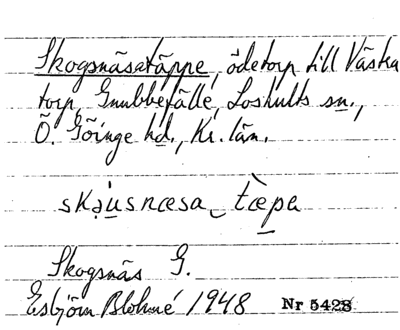 Skogsnäsatäppe, ödetorp till Västra
torp, Gnubbefälle, Loshults sn.,
Ö. Göinge hd., Kr. län.
skɷusnæsa tæ̀pa
Skogsnäs G.
Esbjörn Blohmé 1948 Nr 5428